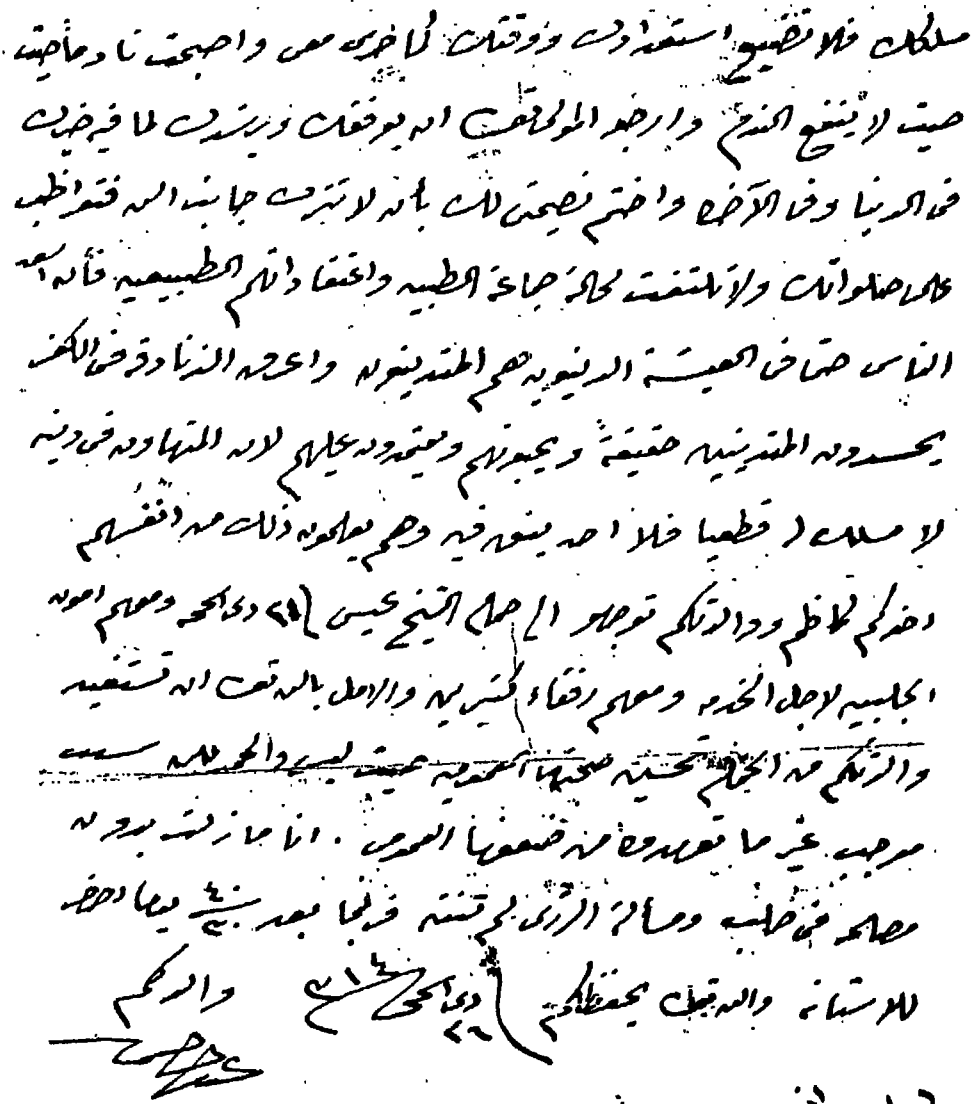 مسلكك فلا تضيع استعدادك ووقتك كما جرى معي واصبحت نادماً حيث
حيث لا ينفع الندم وارجو المولى تعالى ان يوفقك ويرشدك لما فيه خيرك
في الدنيا وفي الآخرة واختم نصيحتي لك بأن لا تترك جانب الله فتواظب
على صلواتك ولا تلتفت لحالة جماعة الطبيه واعتقاداتهم الطبيعيه فأن اسعد
الناس حتما في العيشة الدنيويه هم المتدينون واعرف الزنادقه في الكفر
يحسدون المتدينين حقيقةً ويحبونهم ويعتمدون عليهم لان المتهاون في دينه
لا مسلك له قطعيا فلا احد يثق فيه وهم يعلمون ذلك من انفسهم
اخوكم كاظم ووالدتكم توجهو الى حمام الشيخ عيسى في ٢٤ ذي الحجه ومعهم
الجلبيه لاجل الخدمه ومعهم رفقاء كثيرين والامل بالله تعالى ان تستفيد
والدتكم من الحمام تحسين صحتها العموميه حيث ليس والحمد لله سبب
موجب غير ما تعهدوه من ضعفها العمومي . انا ما زلت بدون
مصلحه في حلب ومسألة الرزي لم تنته فربما بعد ٣٠ ٤٠ يوما احضر
للاستانه والله تعالى يحفظكم في ٢٦ ذي الحجه ٣١٤ والدكم